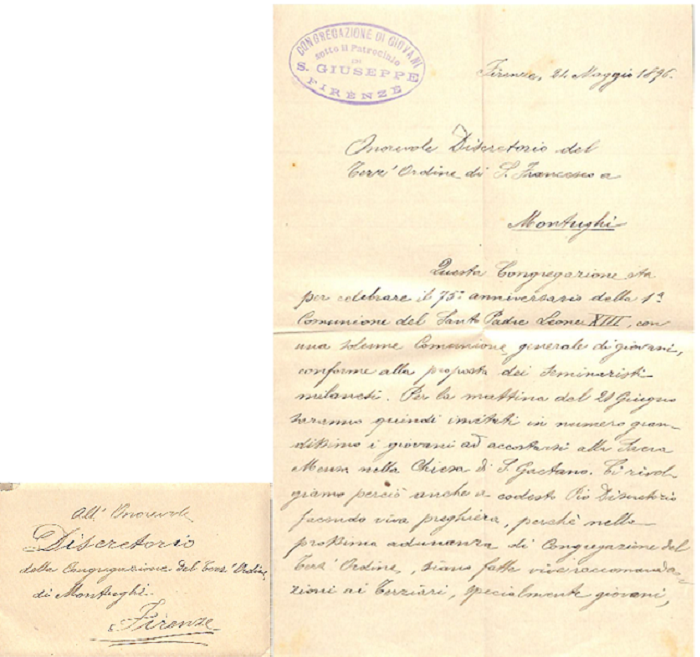 CONGREGAZIONE DI GIOVANI
sotto il Patrocinio
DI
S. GIUSEPPE
FIRENZE
Firenze, 21 Maggio 1896.
Onorevole Discretorio del
Terz' Ordine di S. Francesco a
Montughi
Questa Congregazione sta
per celebrare il 75º anniversario della 1ª
Comunione del Santo Padre Leone XIII, con
una solenne Comunione generale di giovani,
conforme alla proposta dei Seminaristi
milanesi. Per la mattina del 21 Giugno
saranno quindi invitati in numero gran-
dissimo i giovani ad accostarsi alla Sacra
Mensa nella Chiesa di S. Gaetano. Ci rivol-
giamo perciò anche a codesto Pio Discretorio
facendo viva preghiera, perchè nella
prossima adunanza di Congregazione del
Terz' Ordine, siano fatte vive raccomanda-
zioni ai Terziari, specialmente giovani,
All' Onorevole
Discretorio
della Congregazione del Terz' Ordine
di Montughi.
Firenze